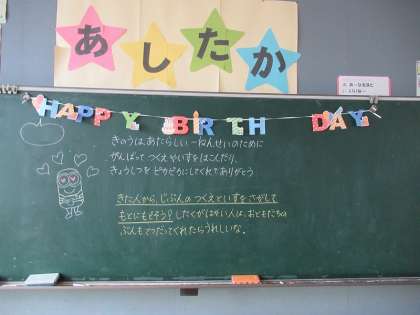 あしたか
HAPPY BIRTH DAY
きのうは、あたらしい一ねんせいのために
がんばって つくえやいすをはこんだり、
きょうしつを ピカピカにしてくれてありがとう
きた人から、じぶんの つくえといすを さがして
もとにもどそう! したくがはやい人は、おともだちの
ぶんもてつだってくれたらうれしいな。